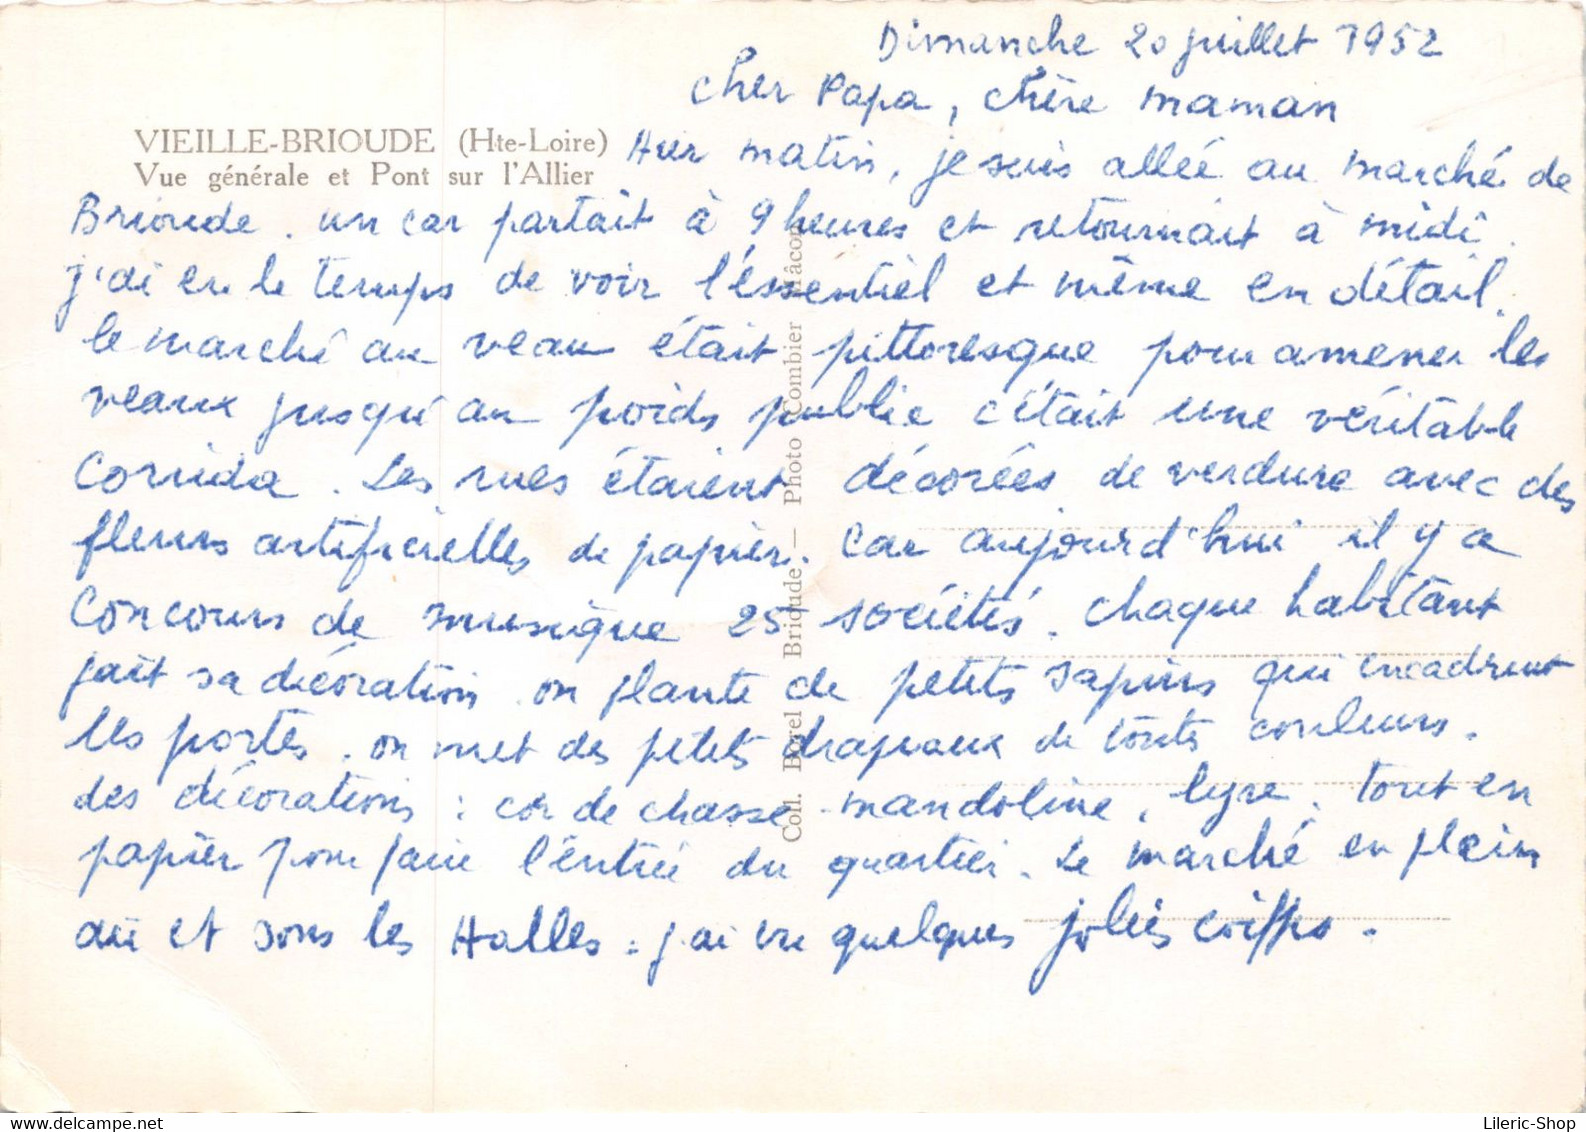 Dimanche 20 juillet 1952
Cher Papa, chère maman
VIEILLE-BRIOUDE (Hte-Loire)
Vue générale et Pont sur l'Allier
Hier matin, je suis allée au marché de
Brioude. un car partait à 9 heures et retournait à midi.
j'ai eu le temps de voir l'éssentiel et même en détail.
le marché au veau était pittoresque pour amener les
veaux jusqu'au poids public c'était une véritable
corrida. Les rues étaient décorées de verdure avec des
fleurs artificielles de papier. Car aujourd'hui il y a
concours de musique 25 sociétés. chaque habitant
fait sa décoration. on plante de petits sapins qui encadrent
les portes. on met des petits drapeaux de toutes couleurs.
des décorations : cor de chasse - mandoline, lyre. tout en
papier pour faire l'entrée du quartier. Le marché en plein
air et sous les Halles. j'ai vu quelques jolies coiffes.
Coll. Borel Brioude — Photo Combier Mâcon
Lileric-Shop